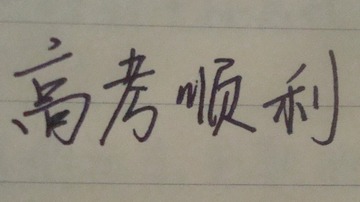 高考顺利